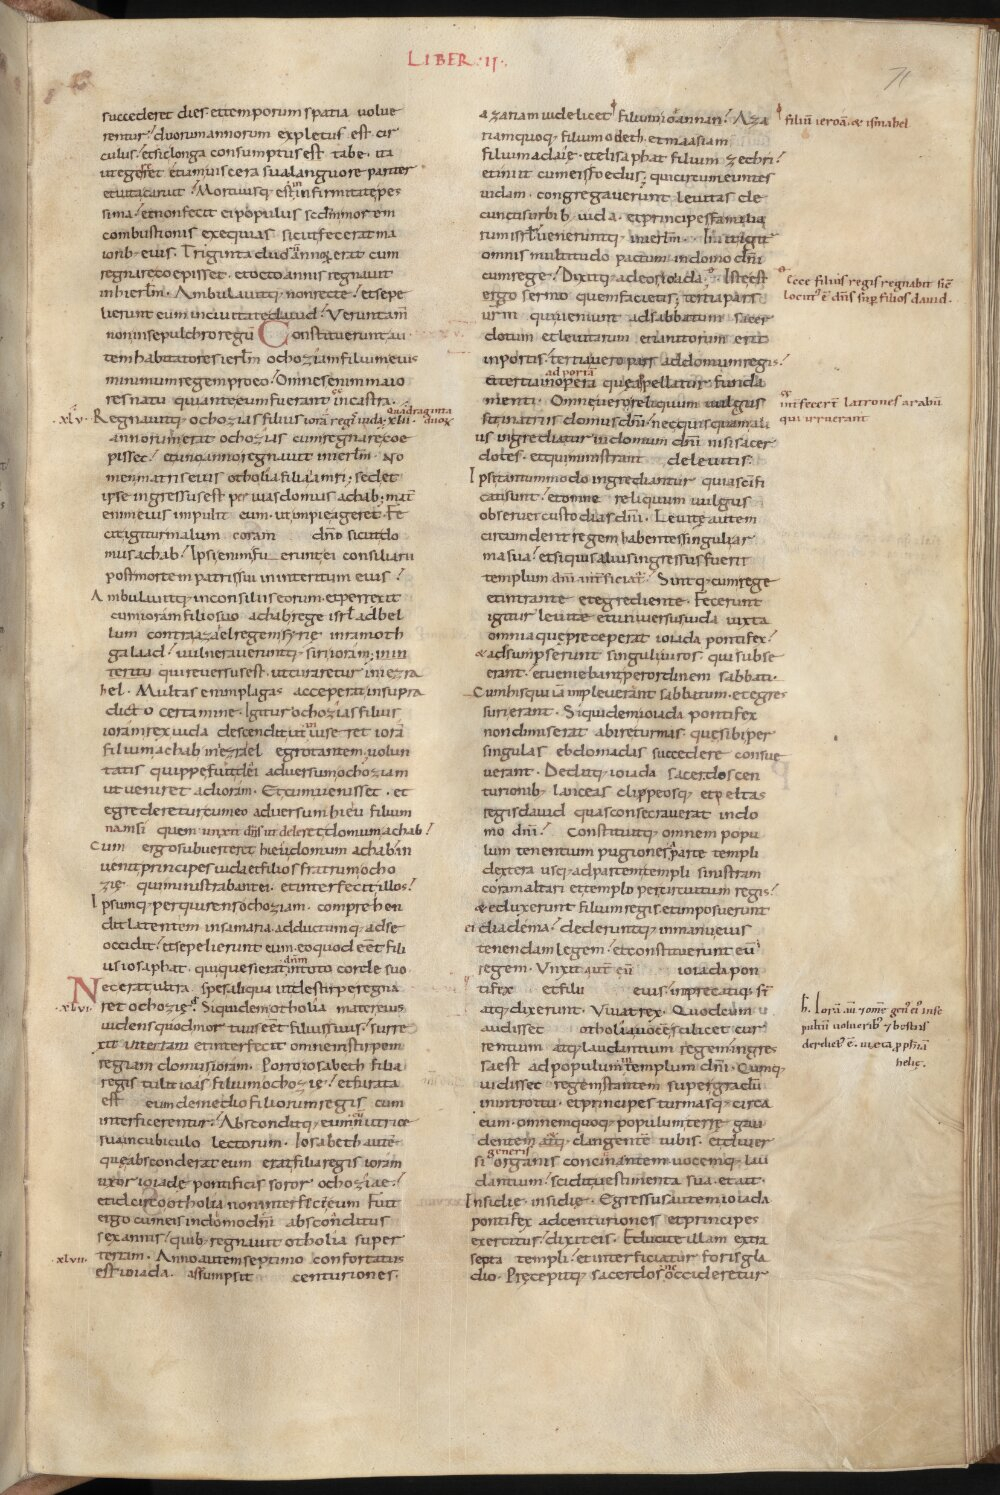 LIBER · II ·
71
succederet dies. et temporum spatia volve
rentur! duorum annorum expletus est cir
culus! et sic longa consumptus est tabe. ita
ut egereret etiam viscera sua languore pariter
et vita caruit! Mortuusq; est in infirmitate pes
sima! et non fecit ei populus scdm morem
combustionis exequias sicut fecerat ma
iorib; eius. Triginta duorum annorum erat cum
regnare coepisset. et octo annis regnavit
in hierlm. Ambulavitq; non recte! et sepe
lierunt eum in civitate david! Verun tam
non in sepulchro regum Constituerunt au
tem habitatores ierlm ochoziam filium eius
minimum regem pro eo! Omnes enim maio
res natu qui ante eum fuerant in castra.
· xlv · Regnavitq; ochozias filius ioram regis iuda; xlii quadraginta duox
annorum erat ochozias cum regnare coe
pisset! et uno anno regnavit in ierlm. No
men matris eius otholia filia amri; sed et
ipse ingressus est per vias domus achab. mat
enim eius impulit eum. ut impie ageret. Fe
cit igitur malum coram dno sicut do
mus achab! Ipsi enim fuerunt ei consiliarii
post mortem patris sui in interitum eius!
Ambulavitq; in consiliis eorum. et perrexit
cum ioram filio suo achab rege isrl ad bel
lum contra azael regem syrie in ramoth
galaad! vulneraveruntq; siri ioram; inin
teritu qui reversus est. ut curaretur in iezra
hel. Multas enim plagas acceperat in supra
dicto certamine. Igitur ochozias filius
ioram rex iuda descendit ut inviseret iorā
filium achab in ezrael egrotantem. volun
tatis quippe fuit dei adversum ochoziam
ut veniret ad ioram. Et cum venisset. et
egrederetur cum eo adversum hieu filium
namsi quem unxit dñs ut deleret domum achab!
Cum ergo subverteret hieu domum achab in
venit principes iuda et filios fratrum ocho
zię qui ministrabant ei. et interfecit illos!
Ipsumq; perquirens ochoziam. comprehen
dit latentem in samaria. adductumq; ad se
occidit! et sepelierunt eum. eo quod eēt fili
us iosaphat. qui quesierat dnm in toto corde suo
Nec erat ultra spes aliqua ut de stirpe regna
· xlvi · ret ochozię. Siquidem otholia mater eius
videns quod mortuus eēt filius suus. surre
xit et interfecit omnem stirpem
regiam domus ioram. Porro iosabeth filia
regis tulit ioas filium ochozię! et furata
est eum de medio filiorum regis cum
interficerentur! Absconditq; eum cum nutrice
sua in cubiculo lectorum. Iosabeth autē
que absconderat eum erat filia regis ioram
uxor ioiade pontificis soror ochoziae!
et idcirco otholia non interfecit eum Fuit
ergo cum eis in domo dñi absconditus
sex annis! quib; regnavit otholia super
· xlvii · terram. Anno autem septimo confortatus
est ioiada. assumpsit centuriones.
azariam videlicet filium ioannan! Aza
riamq; filium odeth. et maasiam
filium adaie. et elisaphat filium zechri!
et iniit cum eis foedus; qui circumeuntes
iudam. congregaverunt levitas de
cunctis urbib; iuda. et principes familia
rum isrl. veneruntq; in ierlm. Iniit igit
omnis multitudo pactum in domo dñi
cum rege! Dixitq; ad eos ioiada. Iste est
ergo sermo quem facietis; tertia pars
urm qui veniunt ad sabbatum sacer
dotum et levitarum et ianitorum erit
in portis. tertia vero pars ad domum regis!
et tertia ad portā quę appellatur funda
menti. Omne vero reliquum vulgus
sit in atriis domus dñi. nec quisquam ali
us ingrediatur in domum dñi nisi sacer
dotes. et qui ministrant de levitis.
Ipsi tantummodo ingrediantur quia scīfi
cati sunt! et omne reliquum vulgus
observet custodias dñi. Levite autem
circumdent regem habentes singuli ar
ma sua! et si quis alius ingressus fuerit
templum dñi interficiatʳ! Sintq; cum rege
et intrante et egrediente. Fecerunt
igitur levitae et universus iuda iuxta
omnia que preceperat ioiada pontifex!
& adsumpserunt singuli viros qui sub se
erant. et veniebant per ordinem sabbati.
Cum his qui iā impleverant sabbatum. et egres
suri erant. Siquidem ioiada pontifex
non dimiserat abire turmas que sibi per
singulas ebdomadas succedere consue
verant. Deditq; ioiada sacerdos cen
turionib; lanceas clippeosq; et peltas
regis david quas consecraverat in do
mo dñi! Constituitq; omnem popu
lum tenentium pugiones. parte templi
dextera usq; ad partem templi sinistram
coram altari et templo per circuitum regis!
& eduxerunt filium regis. et imposuerunt
ei diadema! dederuntq; in manu eius
tenendam legem! et constituerunt eū
regem. Unxit aut eū ioiada pon
tifex et filii eius. inprecatiq; st
atq; dixerunt. Vivat rex. Quod cum
audisset otholia voces scilicet cur
rentium atq; laudantium regem ingres
sa est ad populum in templum dñi. Cumq;
vidisset regem stantem super gradū
in introitu. et principes turmasq; circa
eum. omnemq; populum terrę gau
dentem atq; clangentē tubis. et diver
si generis organis concinantem. vocemq; lau
dantium! scidit vestimenta sua. et ait.
Insidię. insidię. Egressus autem ioiada
pontifex ad centuriones et principes
exercitus! dixit eis. Educite illam extra
septa templi! et interficiatur foris gla
dio. Pręcepitq; sacerdos ne occideretur
filiū ieroā. & ismahel
Ecce filius regis regnabit sic
locutˀ ē dñs sup filios david.
interfecert latrones arabū
qui irruerant